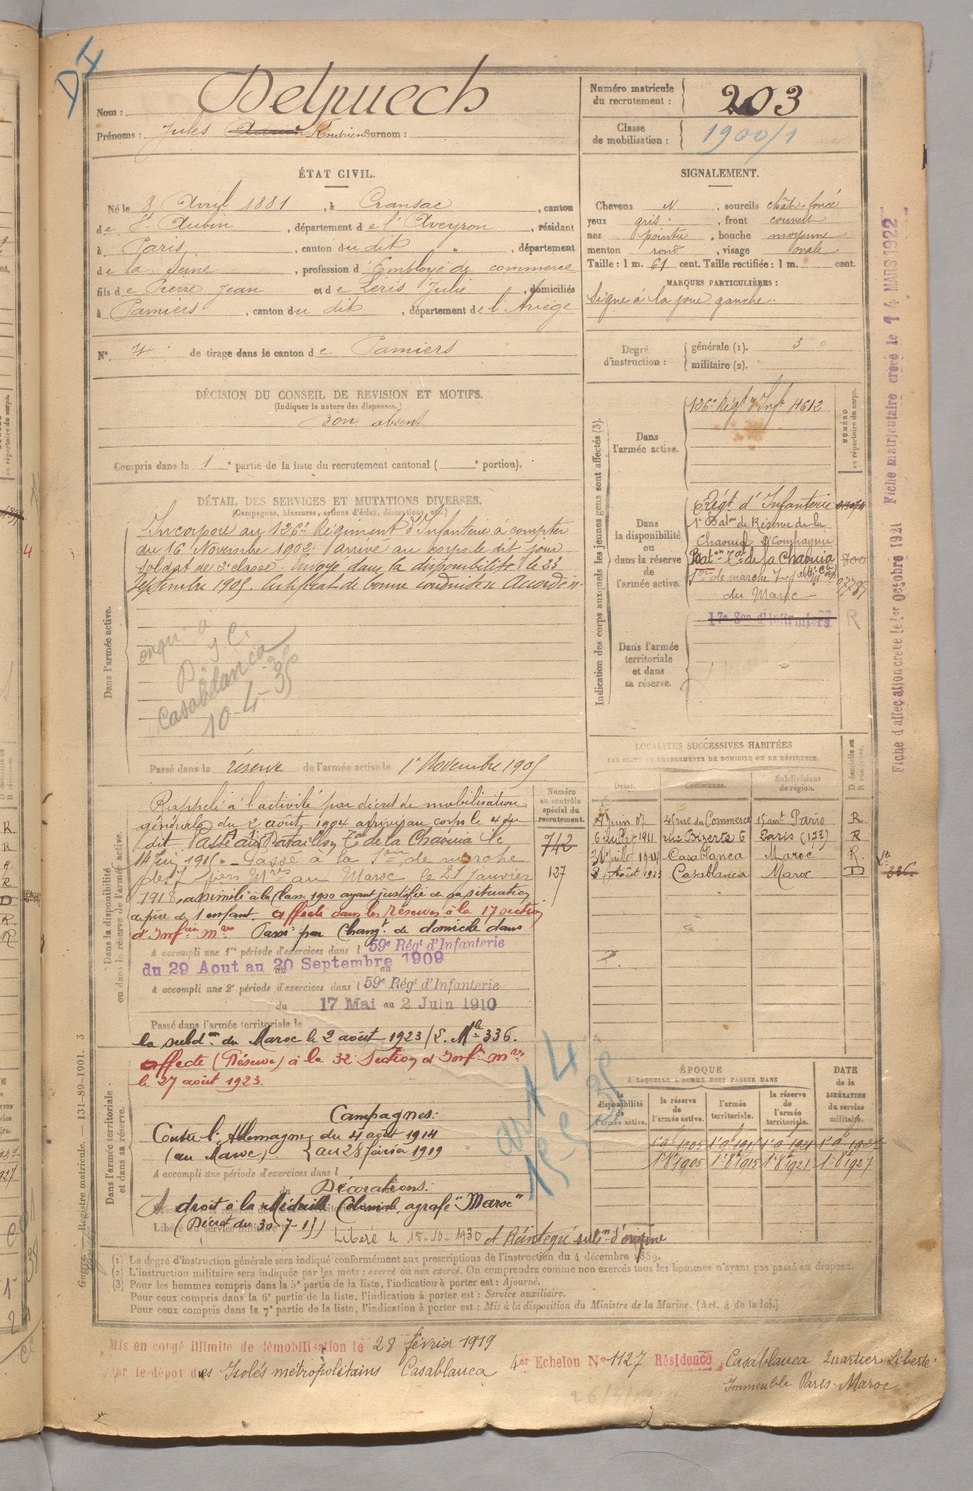 D I
Nom : Delpuech
Prénoms : Jules Surnom :
Numéro matricule du recrutement : 203
Classe de mobilisation : 1900/1
ÉTAT CIVIL.
Né le 8 Avril 1881, à Cransac, canton
de St Aubin, département de l'Aveyron, résidant
à Paris, canton du dit, département
de la Seine, profession d'Employé de commerce
fils de Pierre Jean et de Leris Julie, domiciliés
à Pamiers, canton du dit, département de l'Ariège
N° 4 de tirage dans le canton de Pamiers
SIGNALEMENT.
Cheveux N, sourcils chât. foncé
yeux gris, front couvert
nez pointu, bouche moyenne
menton rond, visage ovale
Taille : 1 m. 61 cent. Taille rectifiée : 1 m. cent.
MARQUES PARTICULIÈRES :
Signe à la joue gauche.
Degré d'instruction : générale (1). 3
militaire (2).
DÉCISION DU CONSEIL DE REVISION ET MOTIFS.
(Indiquer la nature des dispenses.)
Bon absent
Compris dans la 1e partie de la liste du recrutement cantonal ( e portion).
DÉTAIL DES SERVICES ET MUTATIONS DIVERSES.
(Campagnes, blessures, actions d'éclat, décorations, etc.)
Dans l'armée active.
Incorporé au 126e Régiment d'Infanterie à compter
du 16 Novembre 1902 arrivé au corps le dit jour
soldat de 2e classe. Envoyé dans la disponibilité le 23
Septembre 1905. Certificat de bonne conduite Accordé
Casablanca
10-4-35
Passé dans la réserve de l'armée active le 1r Novembre 1905
Indication des corps auxquels les jeunes gens sont affectés (3).
NUMÉRO au répertoire du corps.
Dans l'armée active.
126e Régt d'Inft 4612
Dans la disponibilité ou dans la réserve de l'armée active.
Régt d'Infanterie
1r Batn de Réserve de la
Chaouia 2e Compagnie
Batn Tal de la Chaouia 800
du Maroc
Dans l'armée territoriale et dans sa réserve.
17e Son d'Infirmiers R
LOCALITÉS SUCCESSIVES HABITÉES
PAR SUITE DE CHANGEMENTS DE DOMICILE OU DE RÉSIDENCE.
Dates. Communes. Subdivisions de région. D domicile ou R résidence.
4 rue du Commerce R
6 Juillet 1911 rue Bizerte 6 Paris (12e) R
Casablanca Maroc R
2 Août 1923 Casablanca Maroc D
Dans la disponibilité ou dans la réserve de l'armée active.
Numéro au contrôle spécial du recrutement.
742
127
Rappelé à l'activité par décret de mobilisation
générale du 2 août 1904 arrivé au corps le 4 du
dit. Passé au Bataillon Tal de la Chaouia le
Passé à la Son de marche
au Maroc le 21 janvier
1918, assimilé à la classe 1900 ayant justifié de sa situation
de père de 1 enfant. affecté dans les réserves à la 17 section
d'Infirm mres Passé par Changt de domicile dans
A accompli une 1re période d'exercices dans l 59e Régt d'Infanterie
du 29 Aout au 20 Septembre 1909
A accompli une 2e période d'exercices dans l 59e Régt d'Infanterie
du 17 Mai au 2 Juin 1910
Passé dans l'armée territoriale le
la subdon du Maroc le 2 août 1923 (L. Mle 336.
affecté (Réserve) à la 32 Section d'Infirm mres
le 27 août 1923.
Dans l'armée territoriale et dans sa réserve.
Campagnes :
Contre l'Allemagne du 4 août 1914
(au Maroc) au 28 février 1919
A accompli une période d'exercices dans l
Décorations.
A droit à la Médaille Coloniale, agrafe "Maroc"
(Décret du 30-7-13)
Libéré le 15-10-1930 et Réintégré subdon d'origine
art 4
ÉPOQUE
À LAQUELLE L'HOMME DOIT PASSER DANS
DATE de la LIBÉRATION du service militaire.
disponibilité de l'armée active. la réserve de l'armée active. l'armée territoriale. la réserve de l'armée territoriale.
1r 8e 1905 1r 8e 1915 1r 8e 1921 1r 8e 1927
(1) Le degré d'instruction générale sera indiqué conformément aux prescriptions de l'instruction du 4 décembre 1889.
(2) L'instruction militaire sera indiquée par les mots : exercé ou non exercé. On comprendra comme non exercés tous les hommes n'ayant pas passé au drapeau.
(3) Pour les hommes compris dans la 5e partie de la liste, l'indication à porter est : Ajourné.
Pour ceux compris dans la 6e partie de la liste, l'indication à porter est : Service auxiliaire.
Pour ceux compris dans la 7e partie de la liste, l'indication à porter est : Mis à la disposition du Ministre de la Marine. (Art. 4 de la loi.)
Guerre. — Registre matricule. — 131-89-1901. 3
Mis en congé illimité de démobilisation le 28 février 1919
par le dépot des Isolés métropolitains Casablanca
4er Echelon N° 1127 Résidence Casablanca Quartier Liberté
Immeuble Paris-Maroc
Fiche d'affectation créée le 1er Octobre 1921 Fiche matriculaire créée le 14 MARS 1922